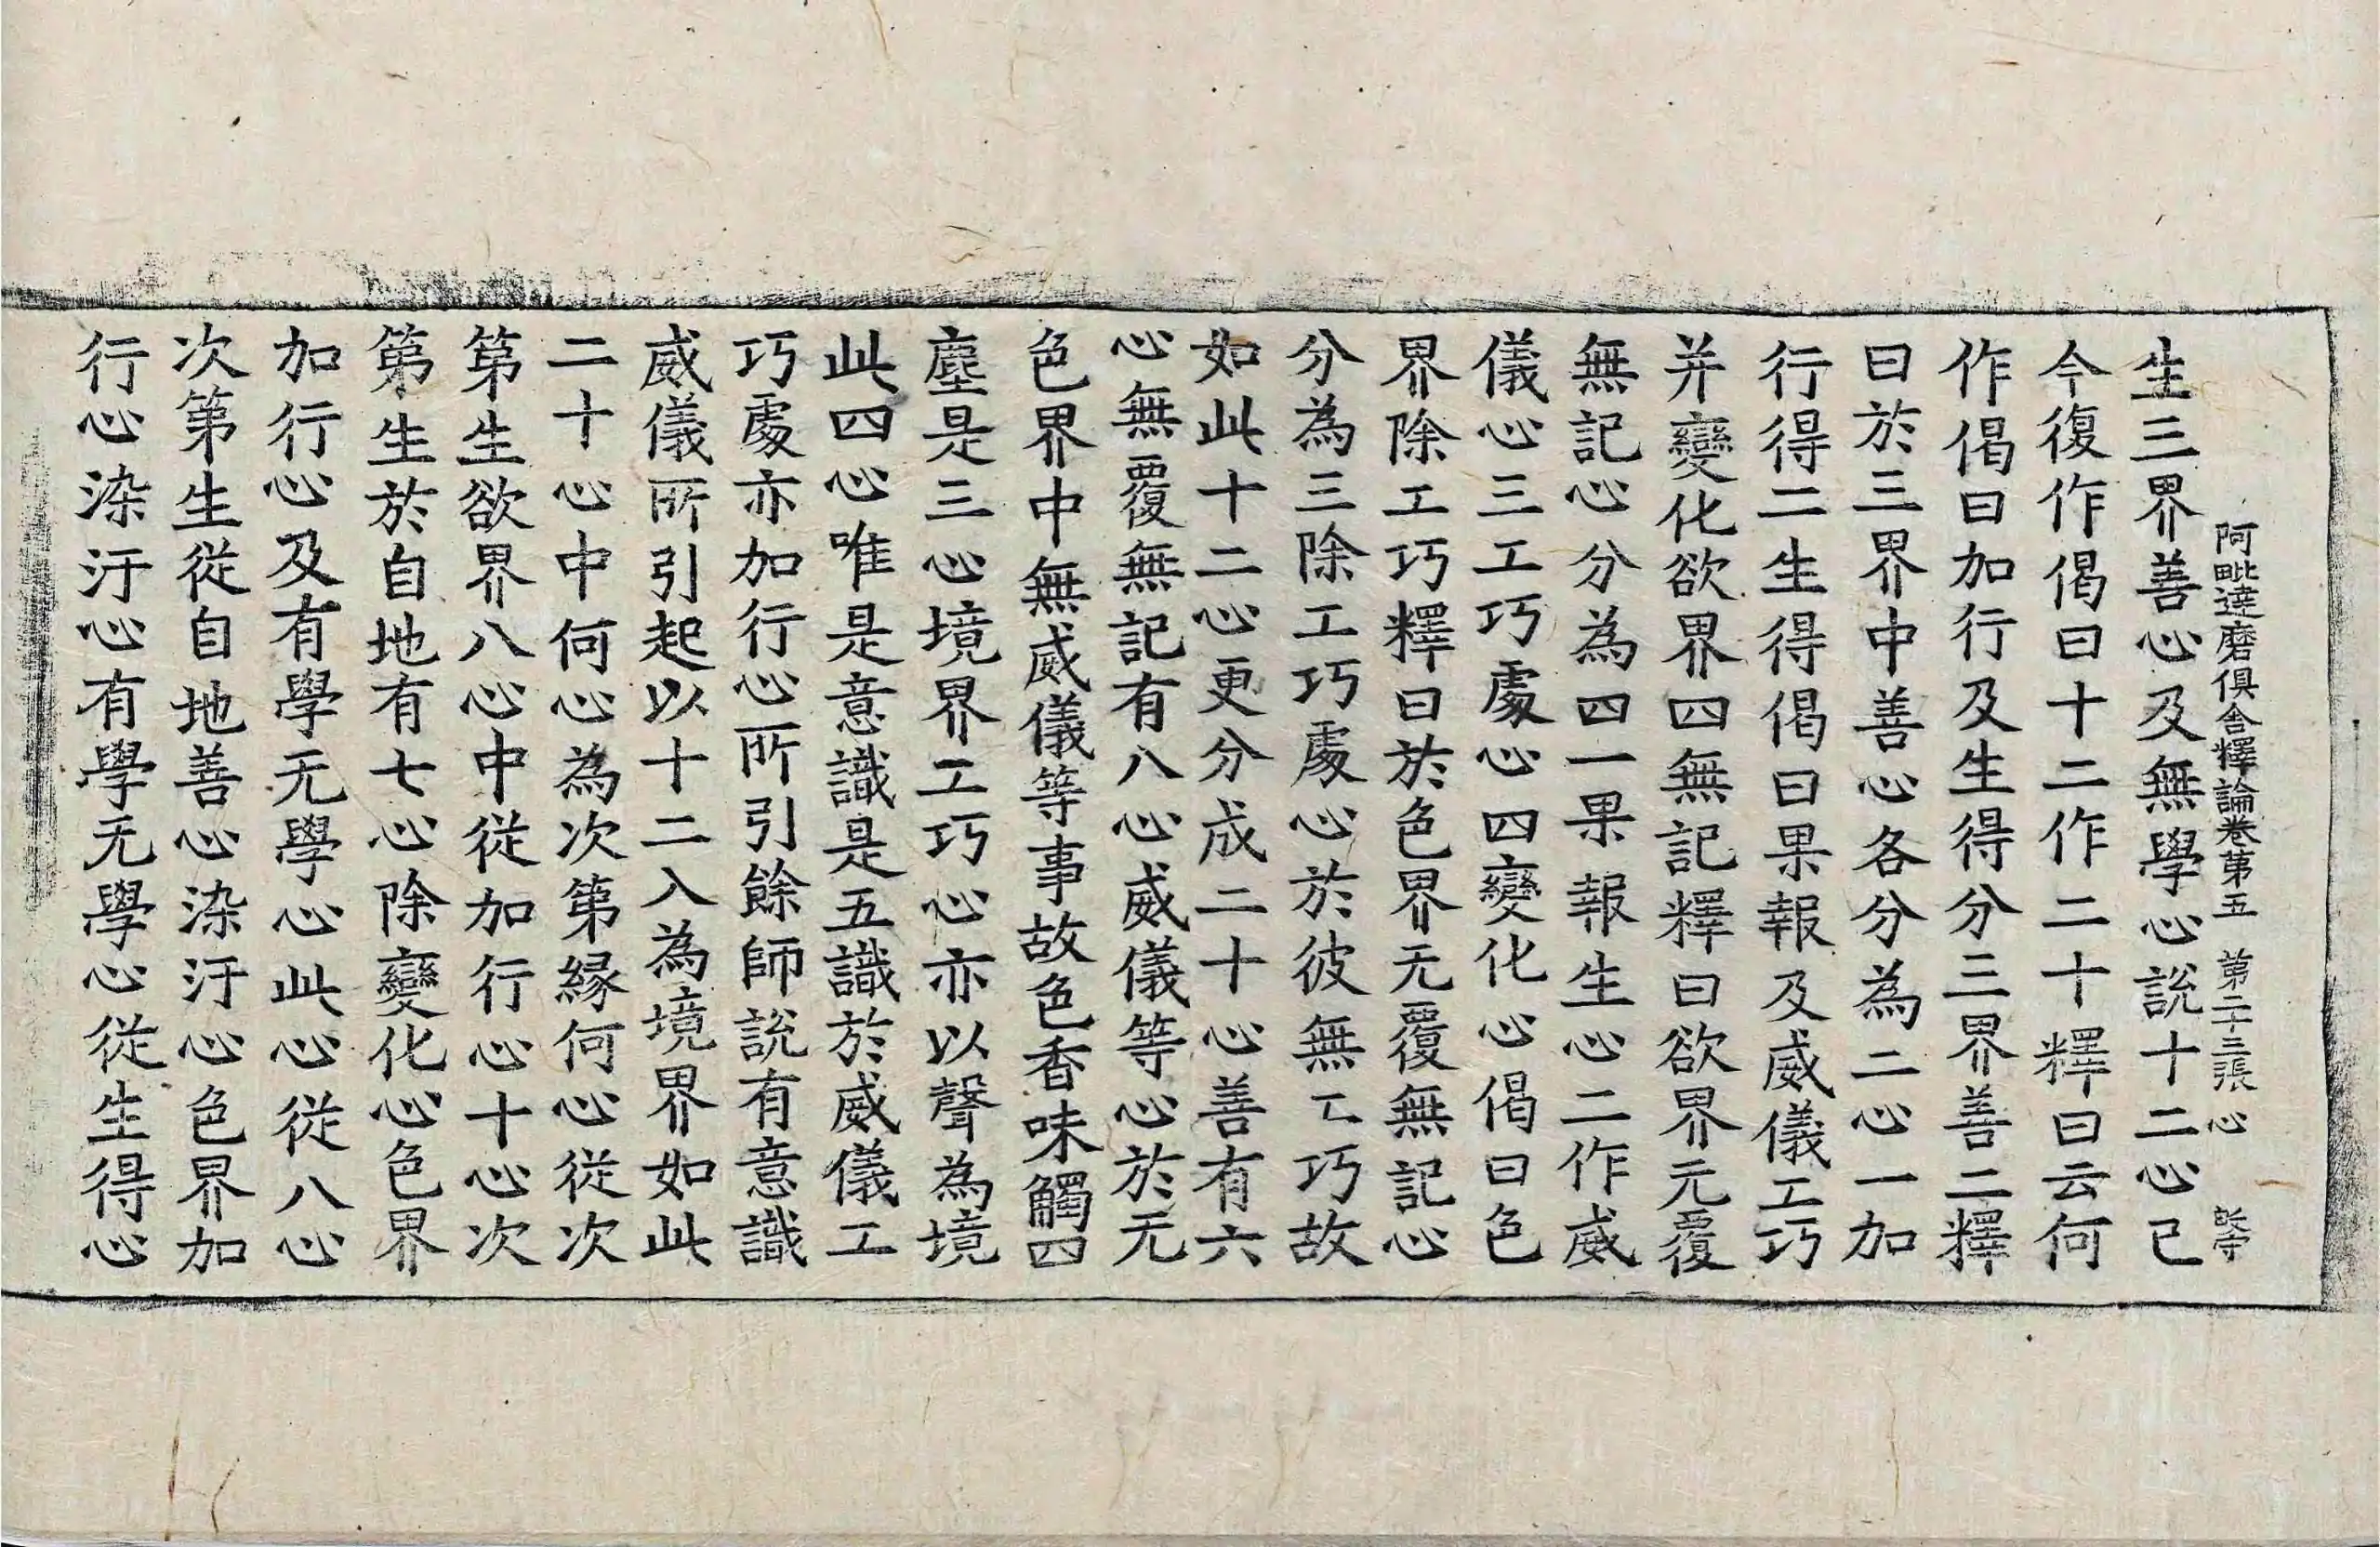 阿毗達磨俱舍釋論卷第五　第二十三張　心
生三界善心及無學心說十二心已
今復作偈曰十二作二十釋曰云何
作偈曰加行及生得分三界善二釋
曰於三界中善心各分為二心一加
行得二生得偈曰果報及威儀工巧
并變化欲界四無記釋曰欲界无覆
無記心分為四一果報生心二作威
儀心三工巧處心四變化心偈曰色
界除工巧釋曰於色界无覆無記心
分為三除工巧處心於彼無工巧故
如此十二心更分成二十心善有六
心無覆無記有八心威儀等心於无
色界中無威儀等事故色香味觸四
塵是三心境界工巧心亦以聲為境
此四心唯是意識是五識於威儀工
巧處亦加行心所引餘師說有意識
威儀所引起以十二入為境界如此
二十心中何心為次第緣何心從次
第生欲界八心中從加行心十心次
第生於自地有七心除變化心色界
加行心及有學无學心此心從八心
次第生從自地善心染汙心色界加
行心染汙心有學无學心從生得心